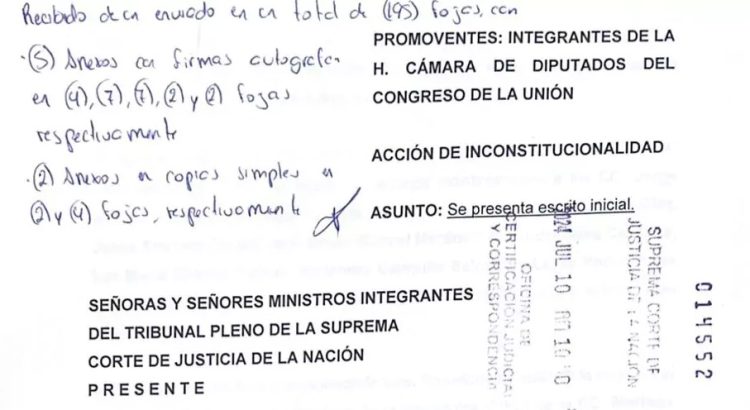 Recibido de un enviado en un total de (195) fojas, con
·(5) Anexos con firmas autografas
en (4), (7), (7), (2) y (2) fojas
respectivamente
·(2) Anexos en copias simples en
(2) y (4) fojas, respectivamente
PROMOVENTES: INTEGRANTES DE LA
H. CÁMARA DE DIPUTADOS DEL
CONGRESO DE LA UNIÓN
ACCIÓN DE INCONSTITUCIONALIDAD
ASUNTO: Se presenta escrito inicial.
SEÑORAS Y SEÑORES MINISTROS INTEGRANTES
DEL TRIBUNAL PLENO DE LA SUPREMA
CORTE DE JUSTICIA DE LA NACIÓN
P R E S E N T E
SUPREMA CORTE DE
JUSTICIA DE LA NACION
JUL 10 10 10
OFICINA DE
CERTIFICACION JUDICIAL
Y CORRESPONDENCIA
014552